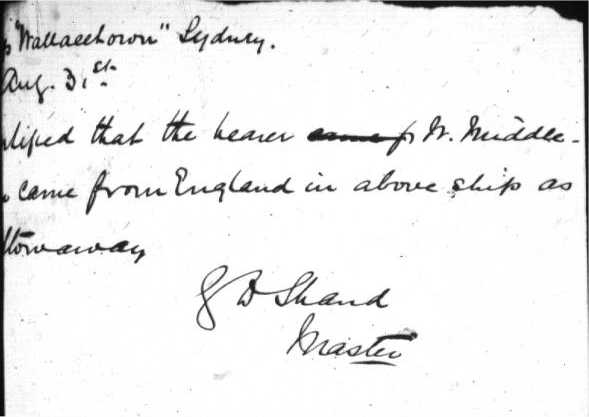 "Wallacetown" Sydney.
Aug. 31st
that the bearer came fr W. Middle-
came from England in above ship as
stowaway
G D Shand
Master